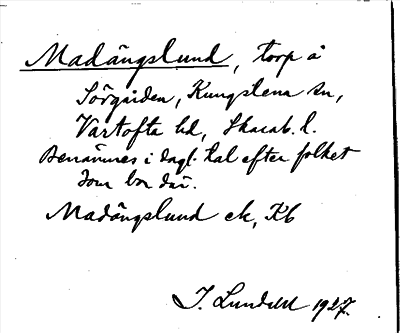 Madängslund, torp å
Sörgården, Kungslena sn,
Vartofta hd, Skarab. l.
Benämnes i dagl. tal efter folket
som bor där.
Madängslund ek, Kb
J. Lundahl 1927.